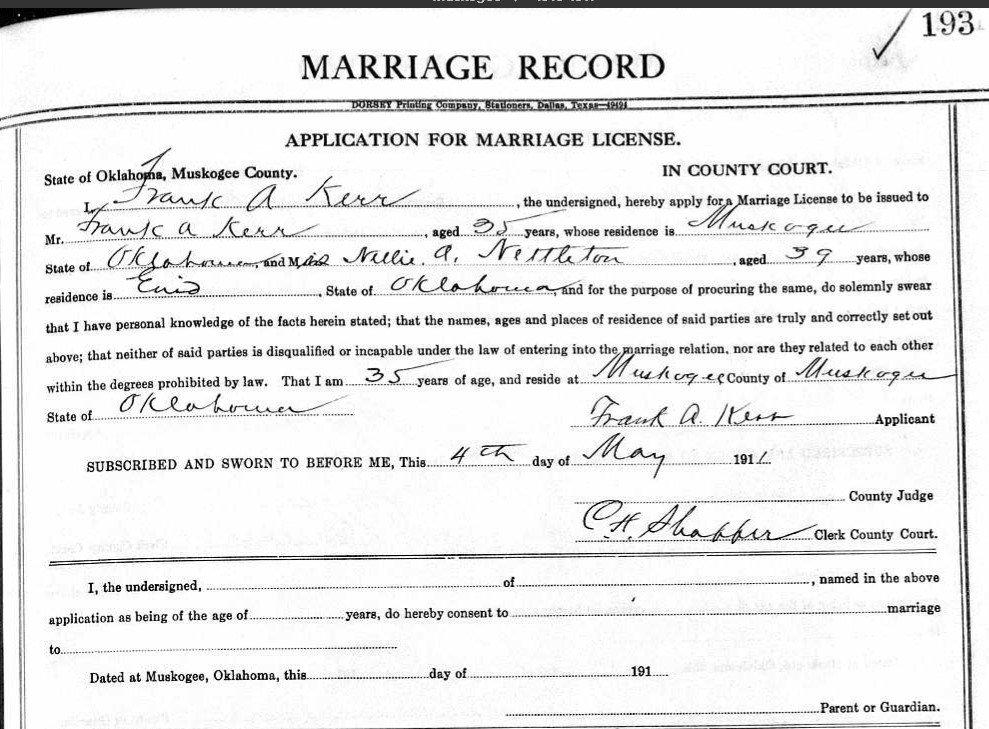 193
MARRIAGE RECORD
DORSEY Printing Company, Stationers, Dallas, Texas—49494
APPLICATION FOR MARRIAGE LICENSE.
State of Oklahoma, Muskogee County.
IN COUNTY COURT.
I, Frank A Kerr, the undersigned, hereby apply for a Marriage License to be issued to
Mr. Frank A Kerr, aged 35 years, whose residence is Muskogee
State of Oklahoma, and Miss Nellie. A. Nettleton, aged 39 years, whose
residence is Enid, State of Oklahoma, and for the purpose of procuring the same, do solemnly swear
that I have personal knowledge of the facts herein stated; that the names, ages and places of residence of said parties are truly and correctly set out
above; that neither of said parties is disqualified or incapable under the law of entering into the marriage relation, nor are they related to each other
within the degrees prohibited by law. That I am 35 years of age, and reside at Muskogee County of Muskogee
State of Oklahoma
Frank A. Kerr Applicant
SUBSCRIBED AND SWORN TO BEFORE ME, This 4th day of May 1911.
County Judge
C.H. Shaffer Clerk County Court.
I, the undersigned, of , named in the above
application as being of the age of years, do hereby consent to marriage
to
Dated at Muskogee, Oklahoma, this day of 191
Parent or Guardian.